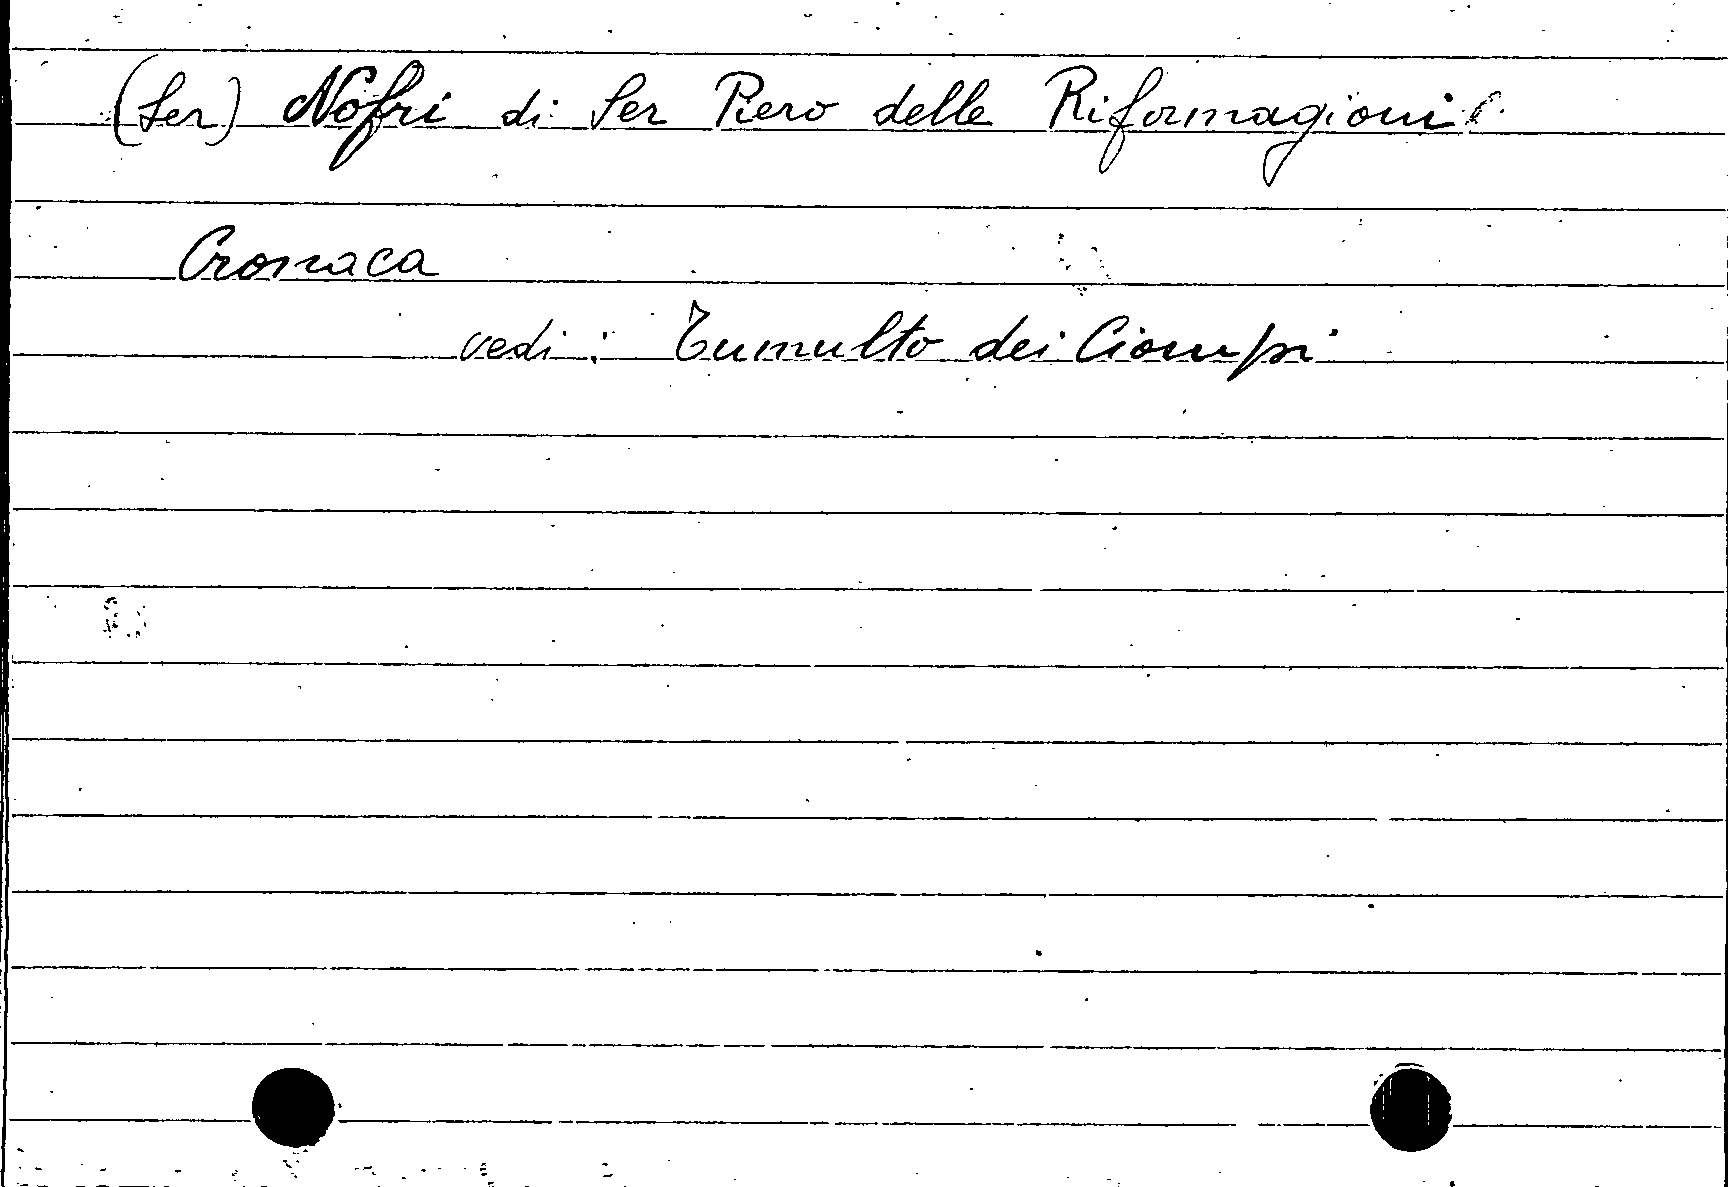 (Ser) Nofri di Ser Piero delle Riformagioni
Cronaca
vedi: Tumulto dei Ciompi